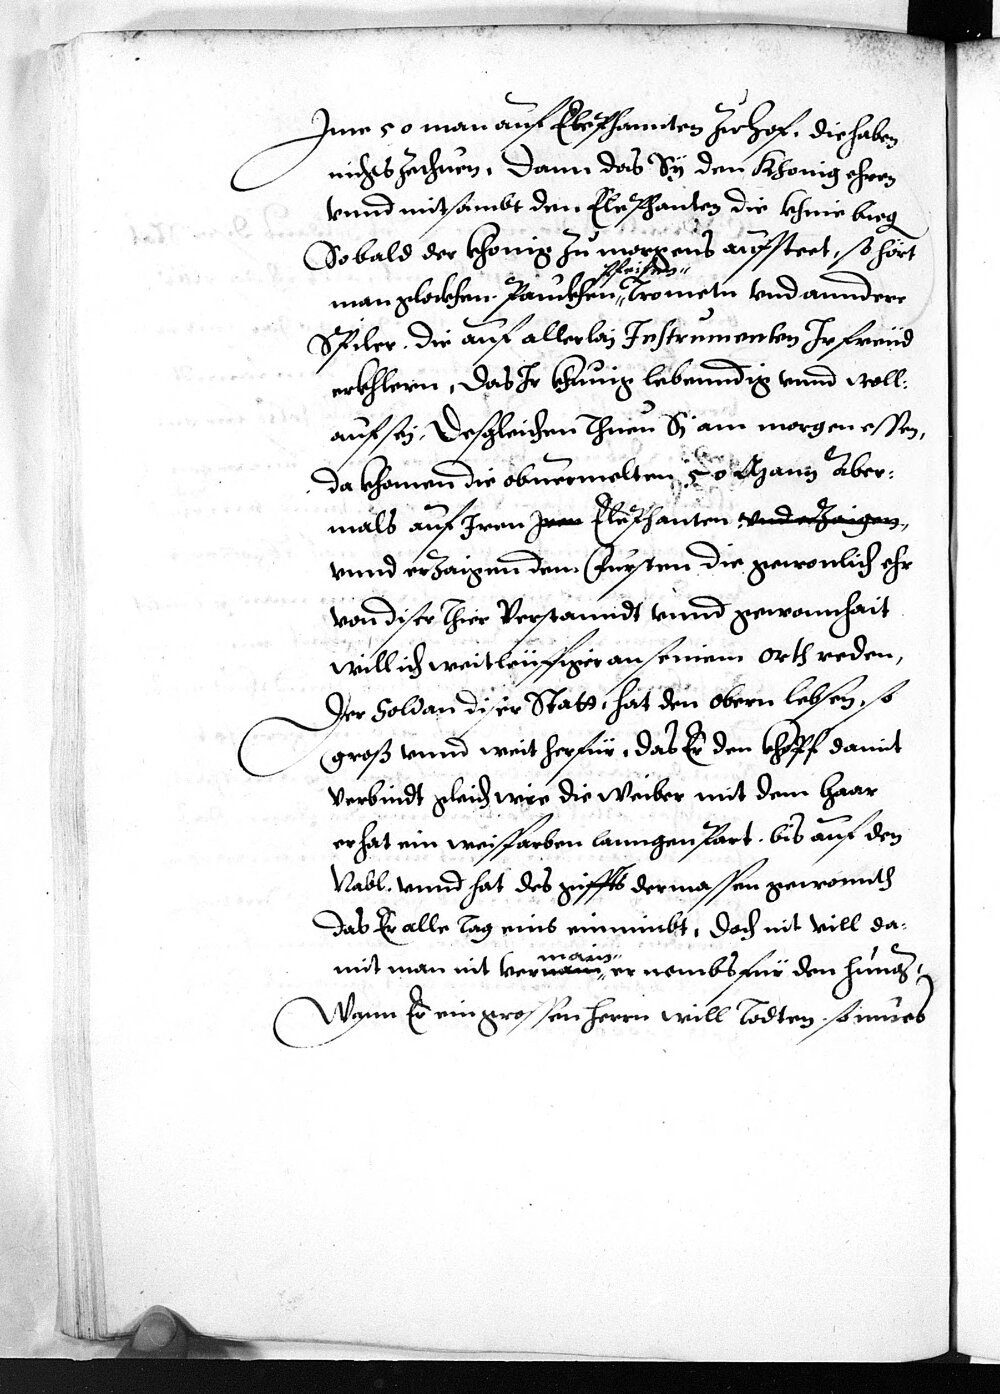 Ime 50 man auf Elephannten zu hof. die haben
nichts zethuen, Dann das Sy den Khonig ehren
vnnd mitsambt den Elephanten die khnie bieg
Sobald der khonig zu morgens aufsteet, so hört
man glockhen. Pauckhen
pfeiffen
Trometn vnd anndere
Spiler. die auf allerlaj Instrumenten Ir freüd
erkhlern, das Ir khunig lebenndig vnnd woll-
auf sej. Desgleichen Thuen Sj am morgen essen,
da khomen die obuermelten 50 Mann Aber-
mals auf Iren Iren Elephanten vnd erzaigen
vnnd erzaigen dem Fursten die gewonlich ehr
von diser Thier Verstanndt vnnd gewonnhait
will ich weitleüffiger an seinem orth reden,
Der Soldan diser Statt, hat den obern lebsen, so
groß vnnd weit herfür, das Er den khopff damit
verbindt gleich wie die weiber mit dem haar
er hat ein weisfarben lanngen Part. bis auf den
Nabl. vnnd hat des giffts dermassen gewonnth
das Er alle Tag eins einnimbt, doch nit vill da-
mit man nit vernain
main
er nembs für den hung,
Wann Er ein grossen herrn will Todten. so mues